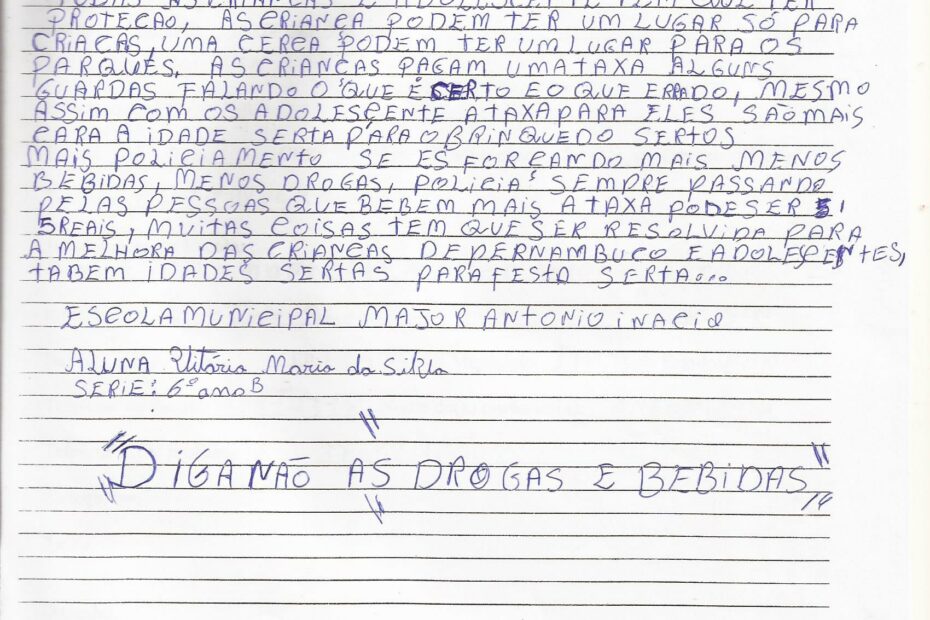 PROTEÇÃO, AS CRIANÇA PODEM TER UM LUGAR SÓ PARA
CRIAÇAS, UMA CERCA PODEM TER UM LUGAR PARA OS
PARQUES, AS CRIANÇAS PAGAM UMA TAXA ALGUNS
GUARDAS FALANDO O QUE É CERTO E O QUE ERRADO, MESMO
ASSIM COM OS ADOLESCENTE A TAXA PARA ELES SÃO MAIS
CARA A IDADE SERTA PARA O BRINQUEDO SERTOS
MAIS POLICIAMENTO SE ESFORCANDO MAIS MENOS
BEBIDAS, MENOS DROGAS, POLICIAS SEMPRE PASSANDO
PELAS PESSOAS QUE BEBEM MAIS A TAXA PODE SER
5 REAIS, MUITAS COISAS TEM QUE SER RESOLVIDA PARA
A MELHORA DAS CRIANCAS DE PERNAMBUCO E ADOLECENTES,
TABEM IDADES SERTAS PARA FESTO SERTA...
ESCOLA MUNICIPAL MAJOR ANTONIO INACIO
ALUNA Vitória Maria da Silva
SERIE: 6º ano B
"DIGA NÃO AS DROGAS E BEBIDAS"